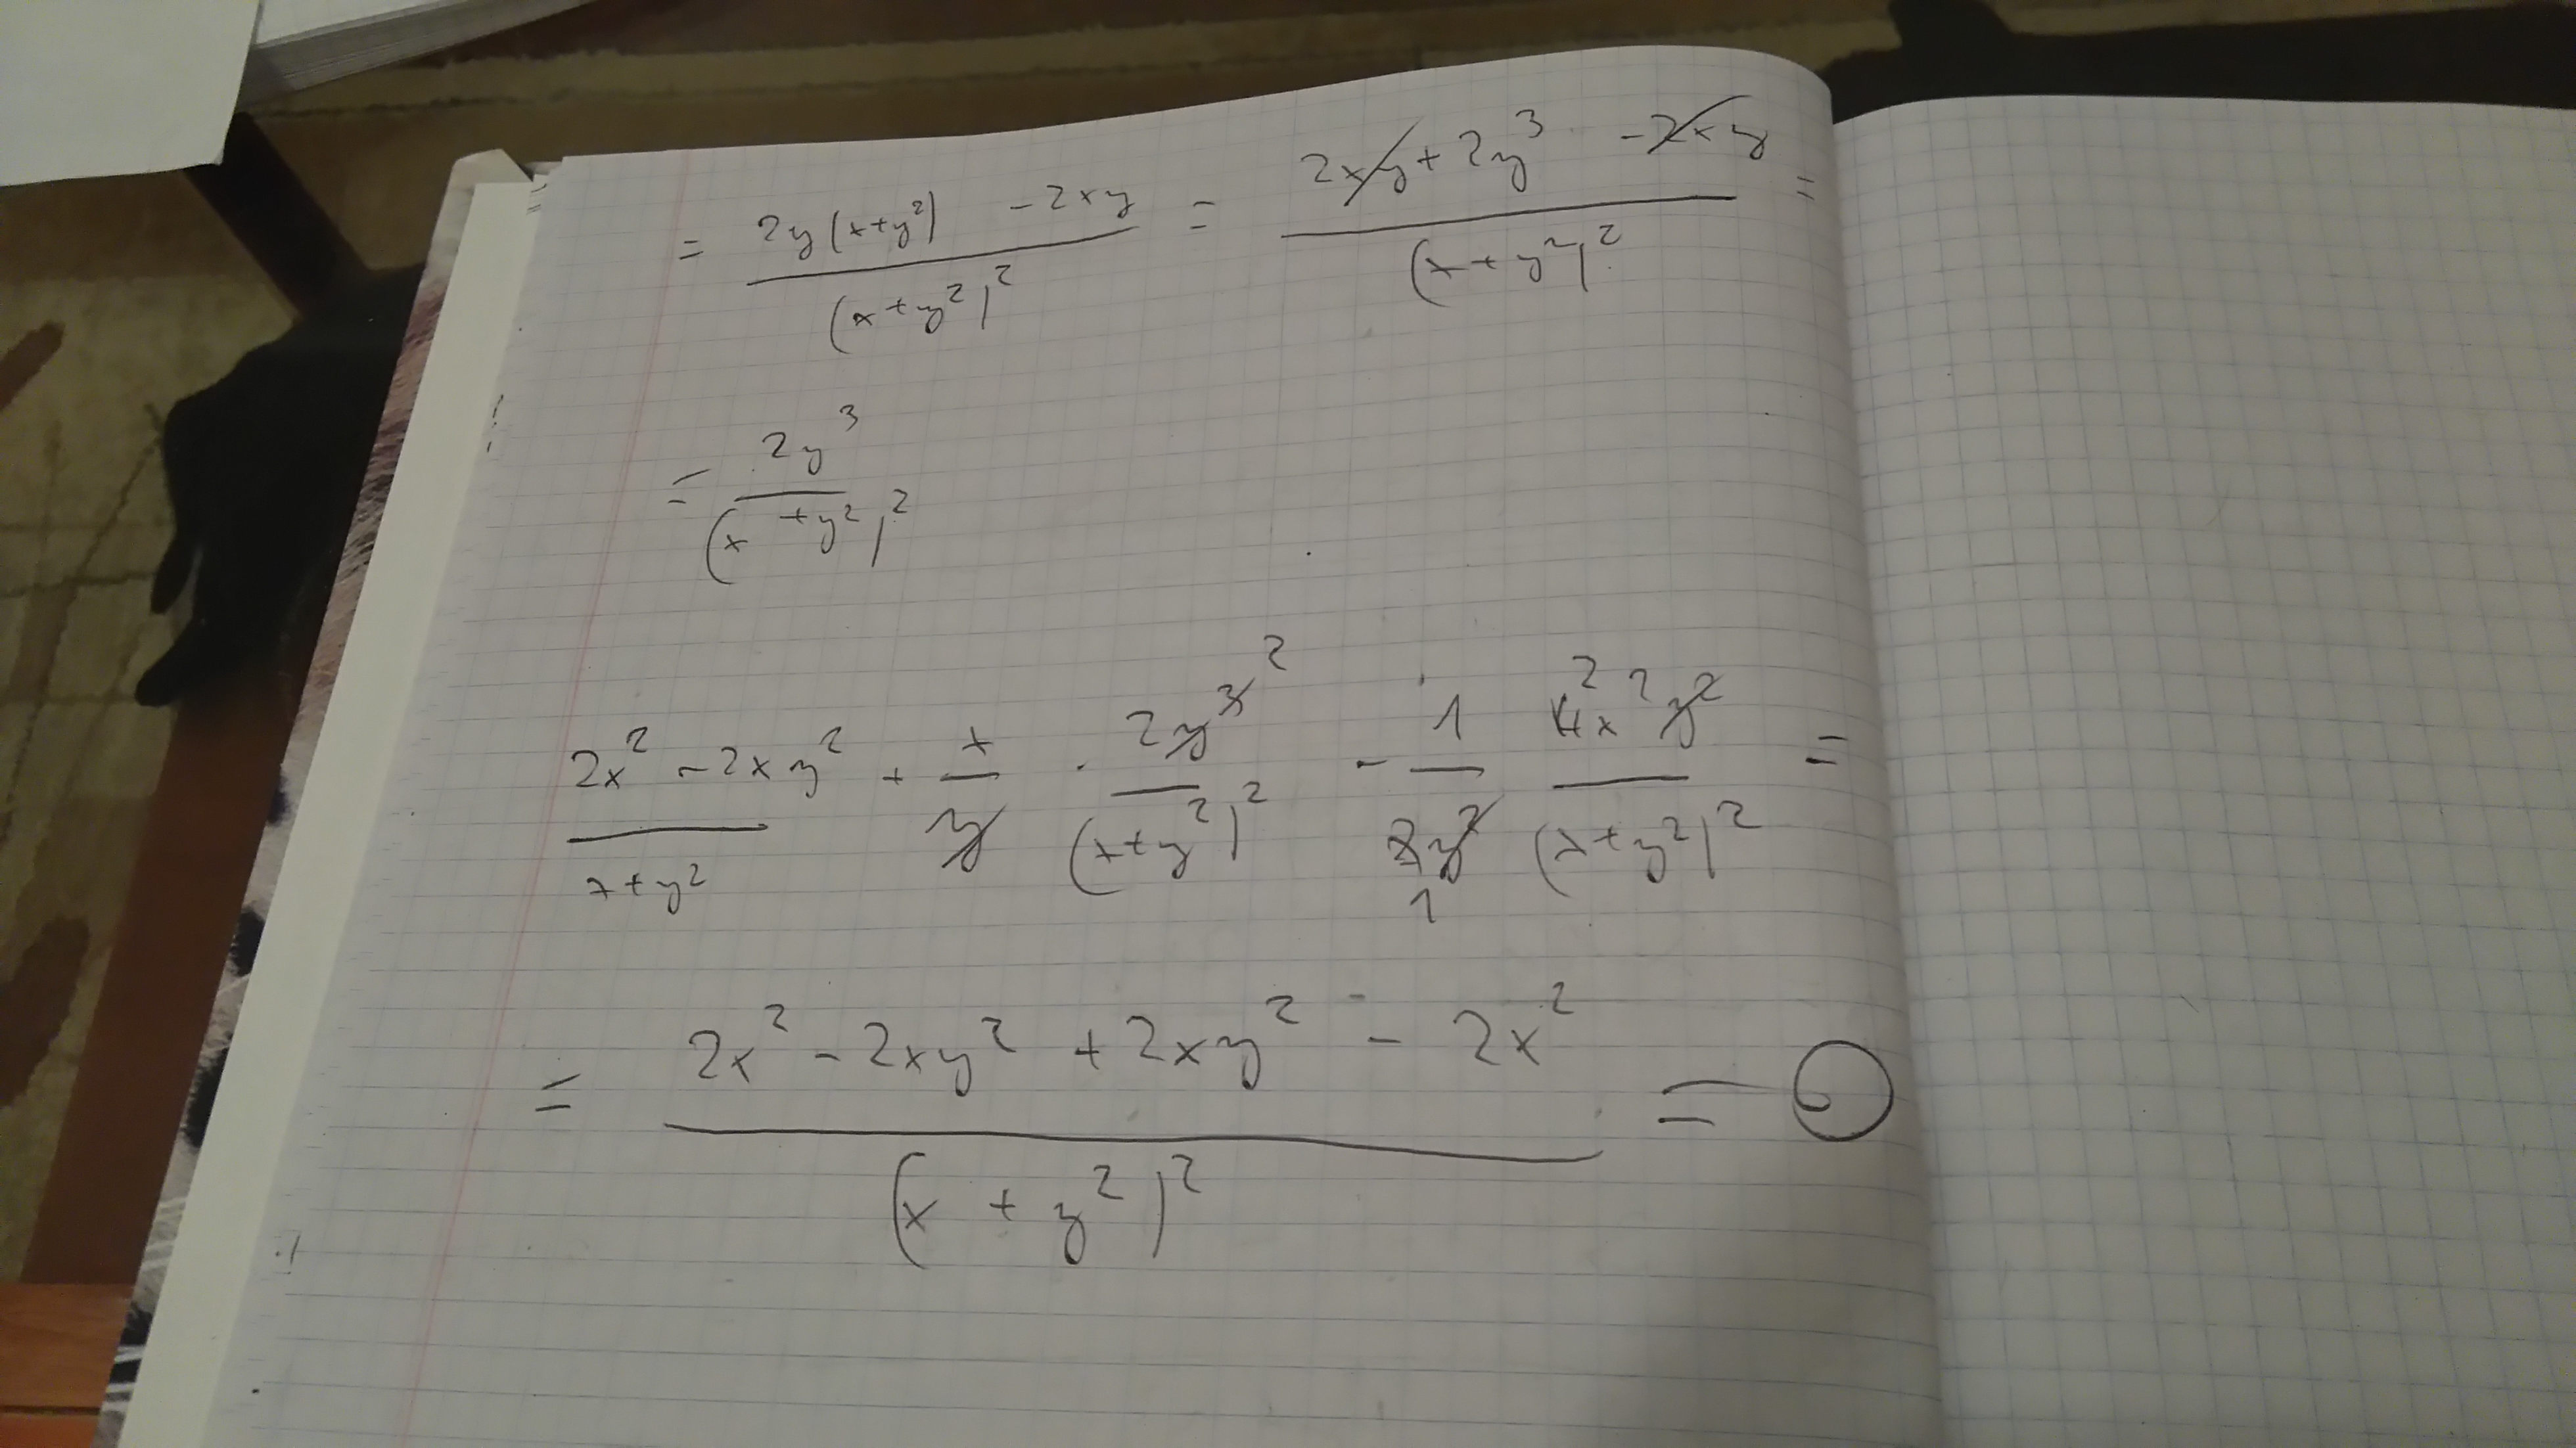 = 2y(x+y²) - 2xy / (x+y²)² = 2xy + 2y³ - 2xy / (x+y²)² =
= 2y³ / (x+y²)²
2x² - 2xy² / x+y² + x/y · 2y³ ² / (x+y²)² - 1 / 2y² 1 · 4 2 x² y² / (x+y²)² =
= 2x² - 2xy² + 2xy² - 2x² / (x+y²)² = 0